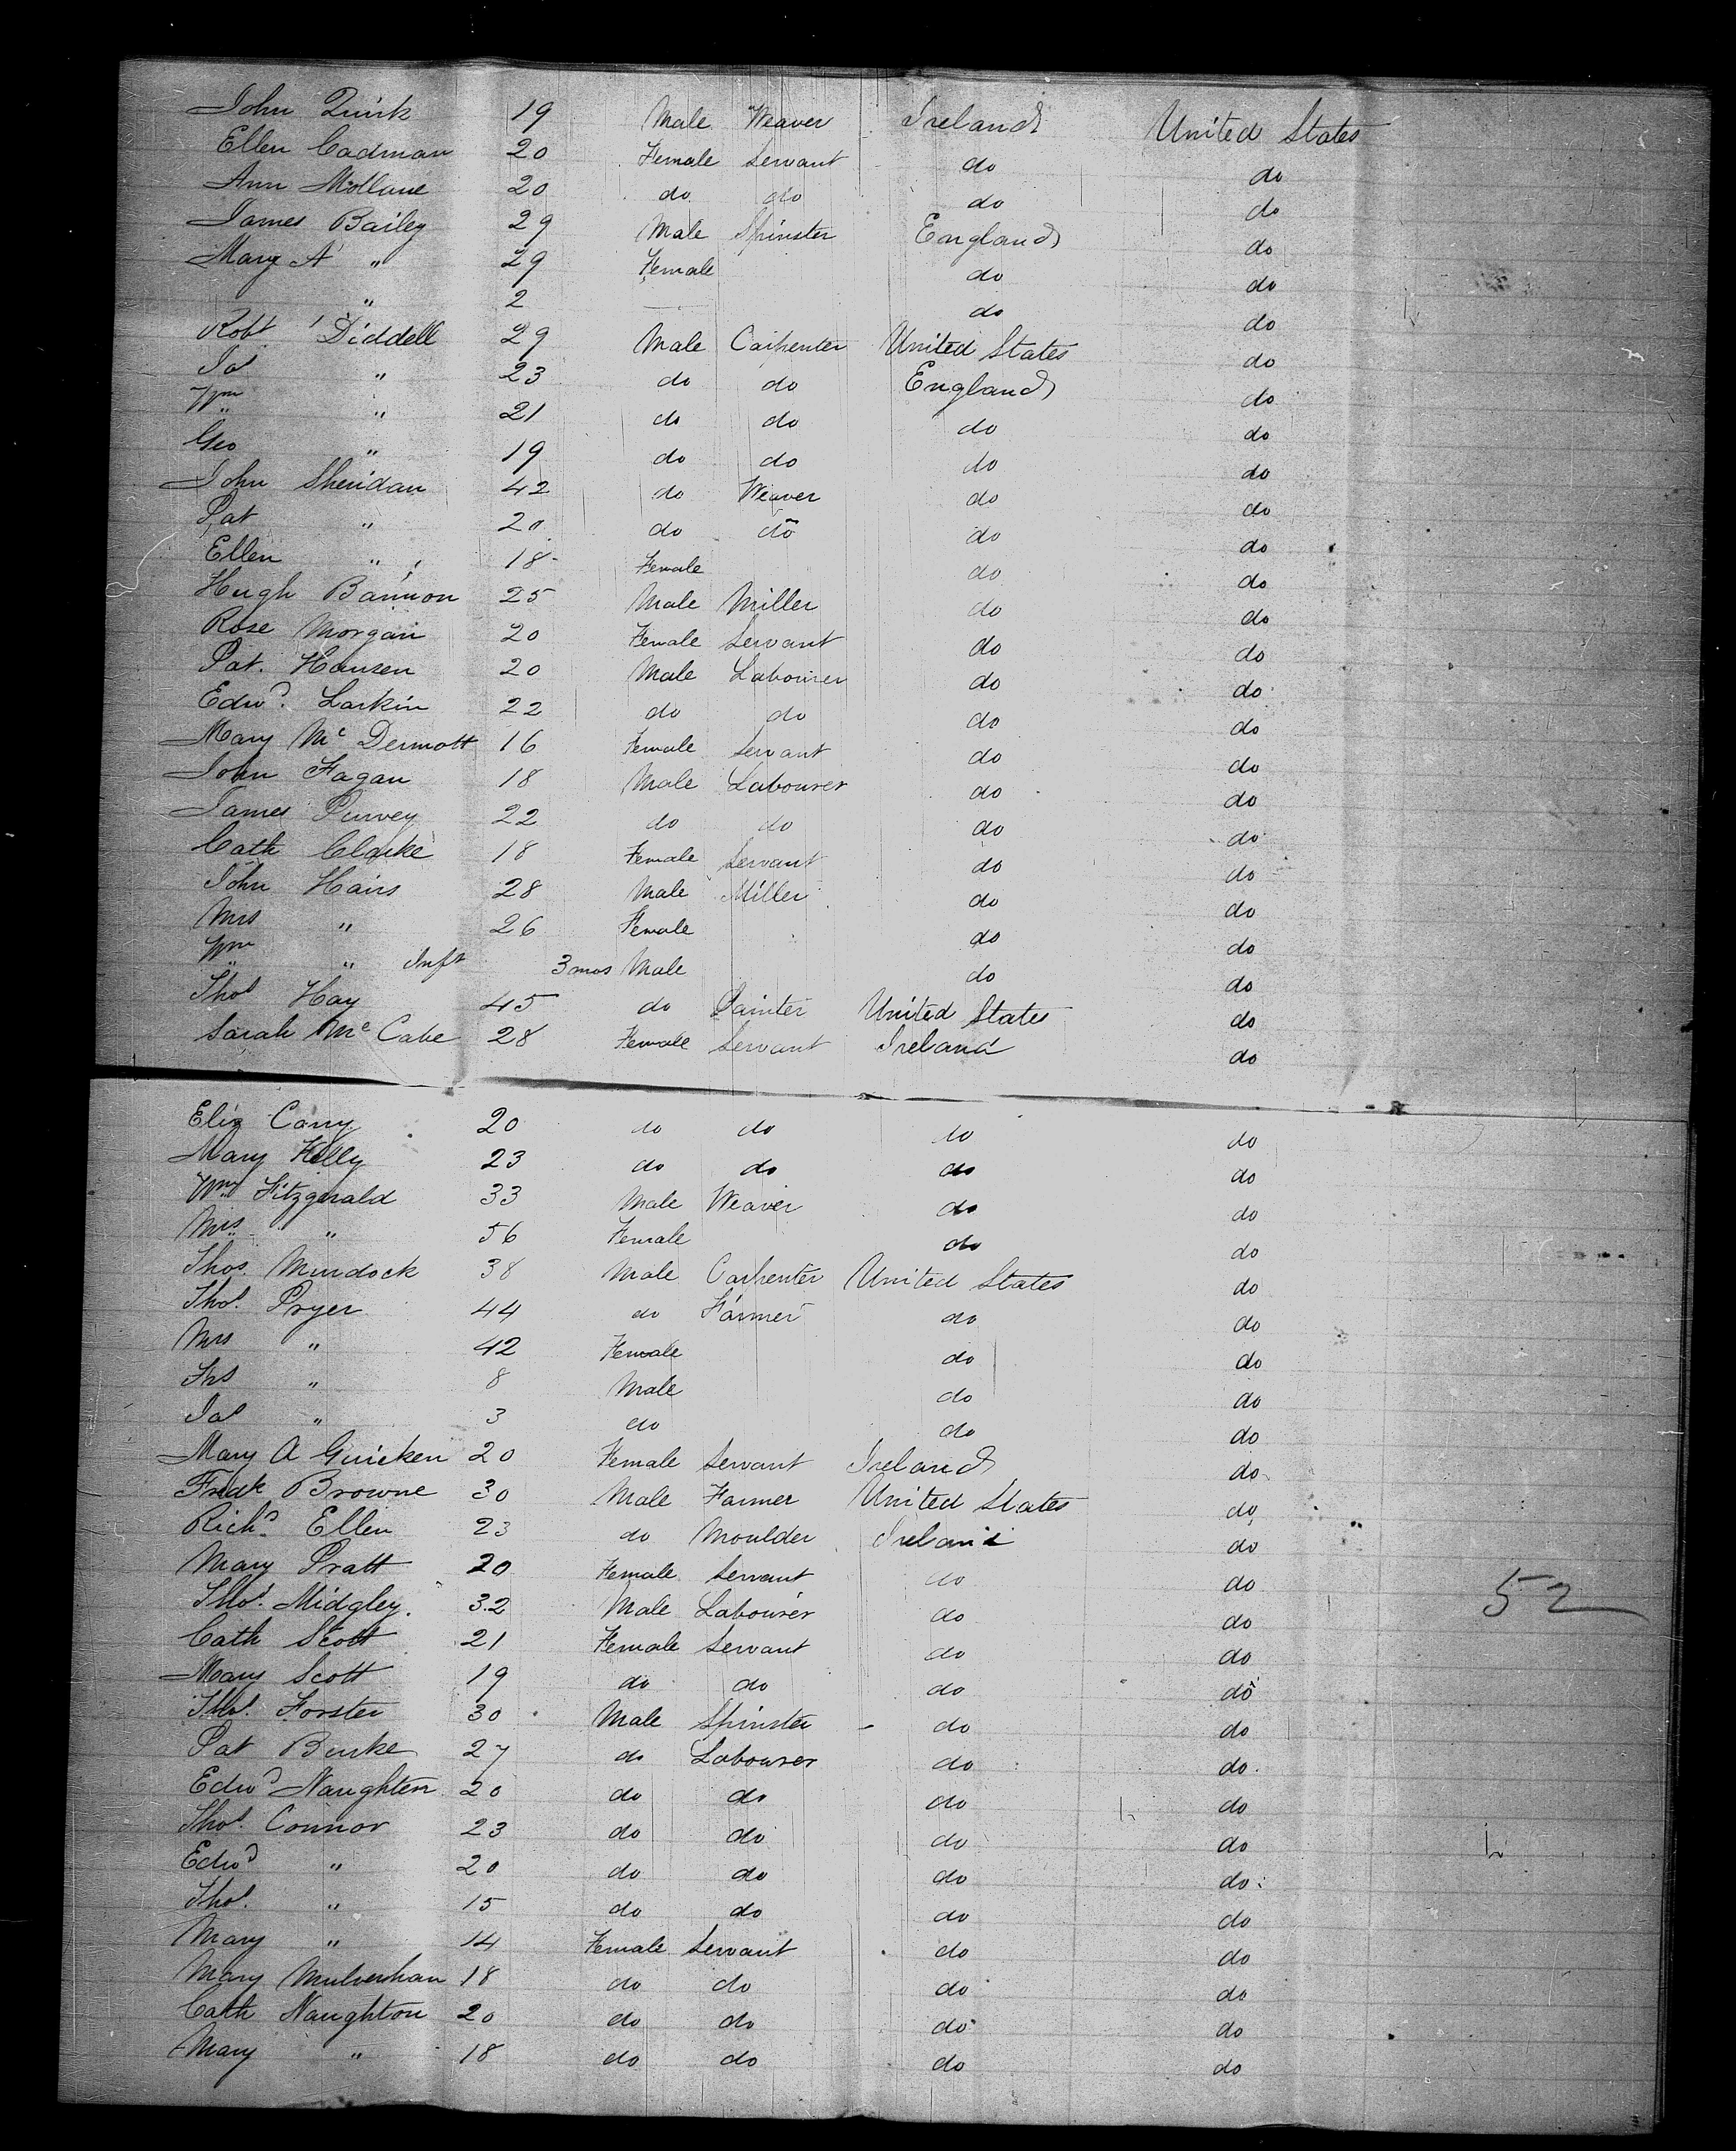 John Quirk 19 Male Weaver Ireland United States
Ellen Cadman 20 Female Servant do do
Ann Mollane 20 do do do do
James Bailey 29 Male Spinster England do
Mary A " 29 Female do do
" 2 do do
Robt Diddell 29 Male Carpenter United States do
Jas " 23 do do England do
Wm " 21 do do do do
Geo " 19 do do do do
John Sheridan 42 do Weaver do do
Pat " 20 do do do do
Ellen " 18 Female do do
Hugh Bannon 25 Male Miller do do
Rose Morgan 20 Female Servant do do
Pat. Hansen 20 Male Labourer do do
Edwd. Larkin 22 do do do do
Mary McDermott 16 Female Servant do do
John Fagan 18 Male Labourer do do
James Purvey 22 do do do do
Cath Clarke 18 Female Servant do do
John Hairs 28 Male Miller do do
Mrs " 26 Female do do
Wm " Inft 3 mos Male do do
Thos Hay 45 do Painter United States do
Sarah McCabe 28 Female Servant Ireland do
Eliz Carry 20 do do do do
Mary Kelly 23 do do do do
Wm Fitzgerald 33 Male Weaver do do
Mrs " 56 Female do do
Thos. Murdock 38 Male Carpenter United States do
Thos. Pryer 44 do Farmer do do
Mrs " 42 Female do do
Ths " 8 Male do do
Jas " 3 do do do
Mary A Guicken 20 Female Servant Ireland do
Fredk Browne 30 Male Farmer United States do
Richd. Ellen 23 do Moulder Ireland do
Mary Pratt 20 Female Servant do do
Thos. Midgley. 32 Male Labourer do do 52
Cath Scott 21 Female Servant do do
Mary Scott 19 do do do do
Thos. Forster 30 Male Spinster do do
Pat Burke 27 do Labourer do do
Edwd Naughten 20 do do do do
Thos. Connor 23 do do do do
Edwd " 20 do do do do
Thos. " 15 do do do do
Mary " 14 Female Servant do do
Mary Mulvenhan 18 do do do do
Cath Naughton 20 do do do do
Mary " 18 do do do do